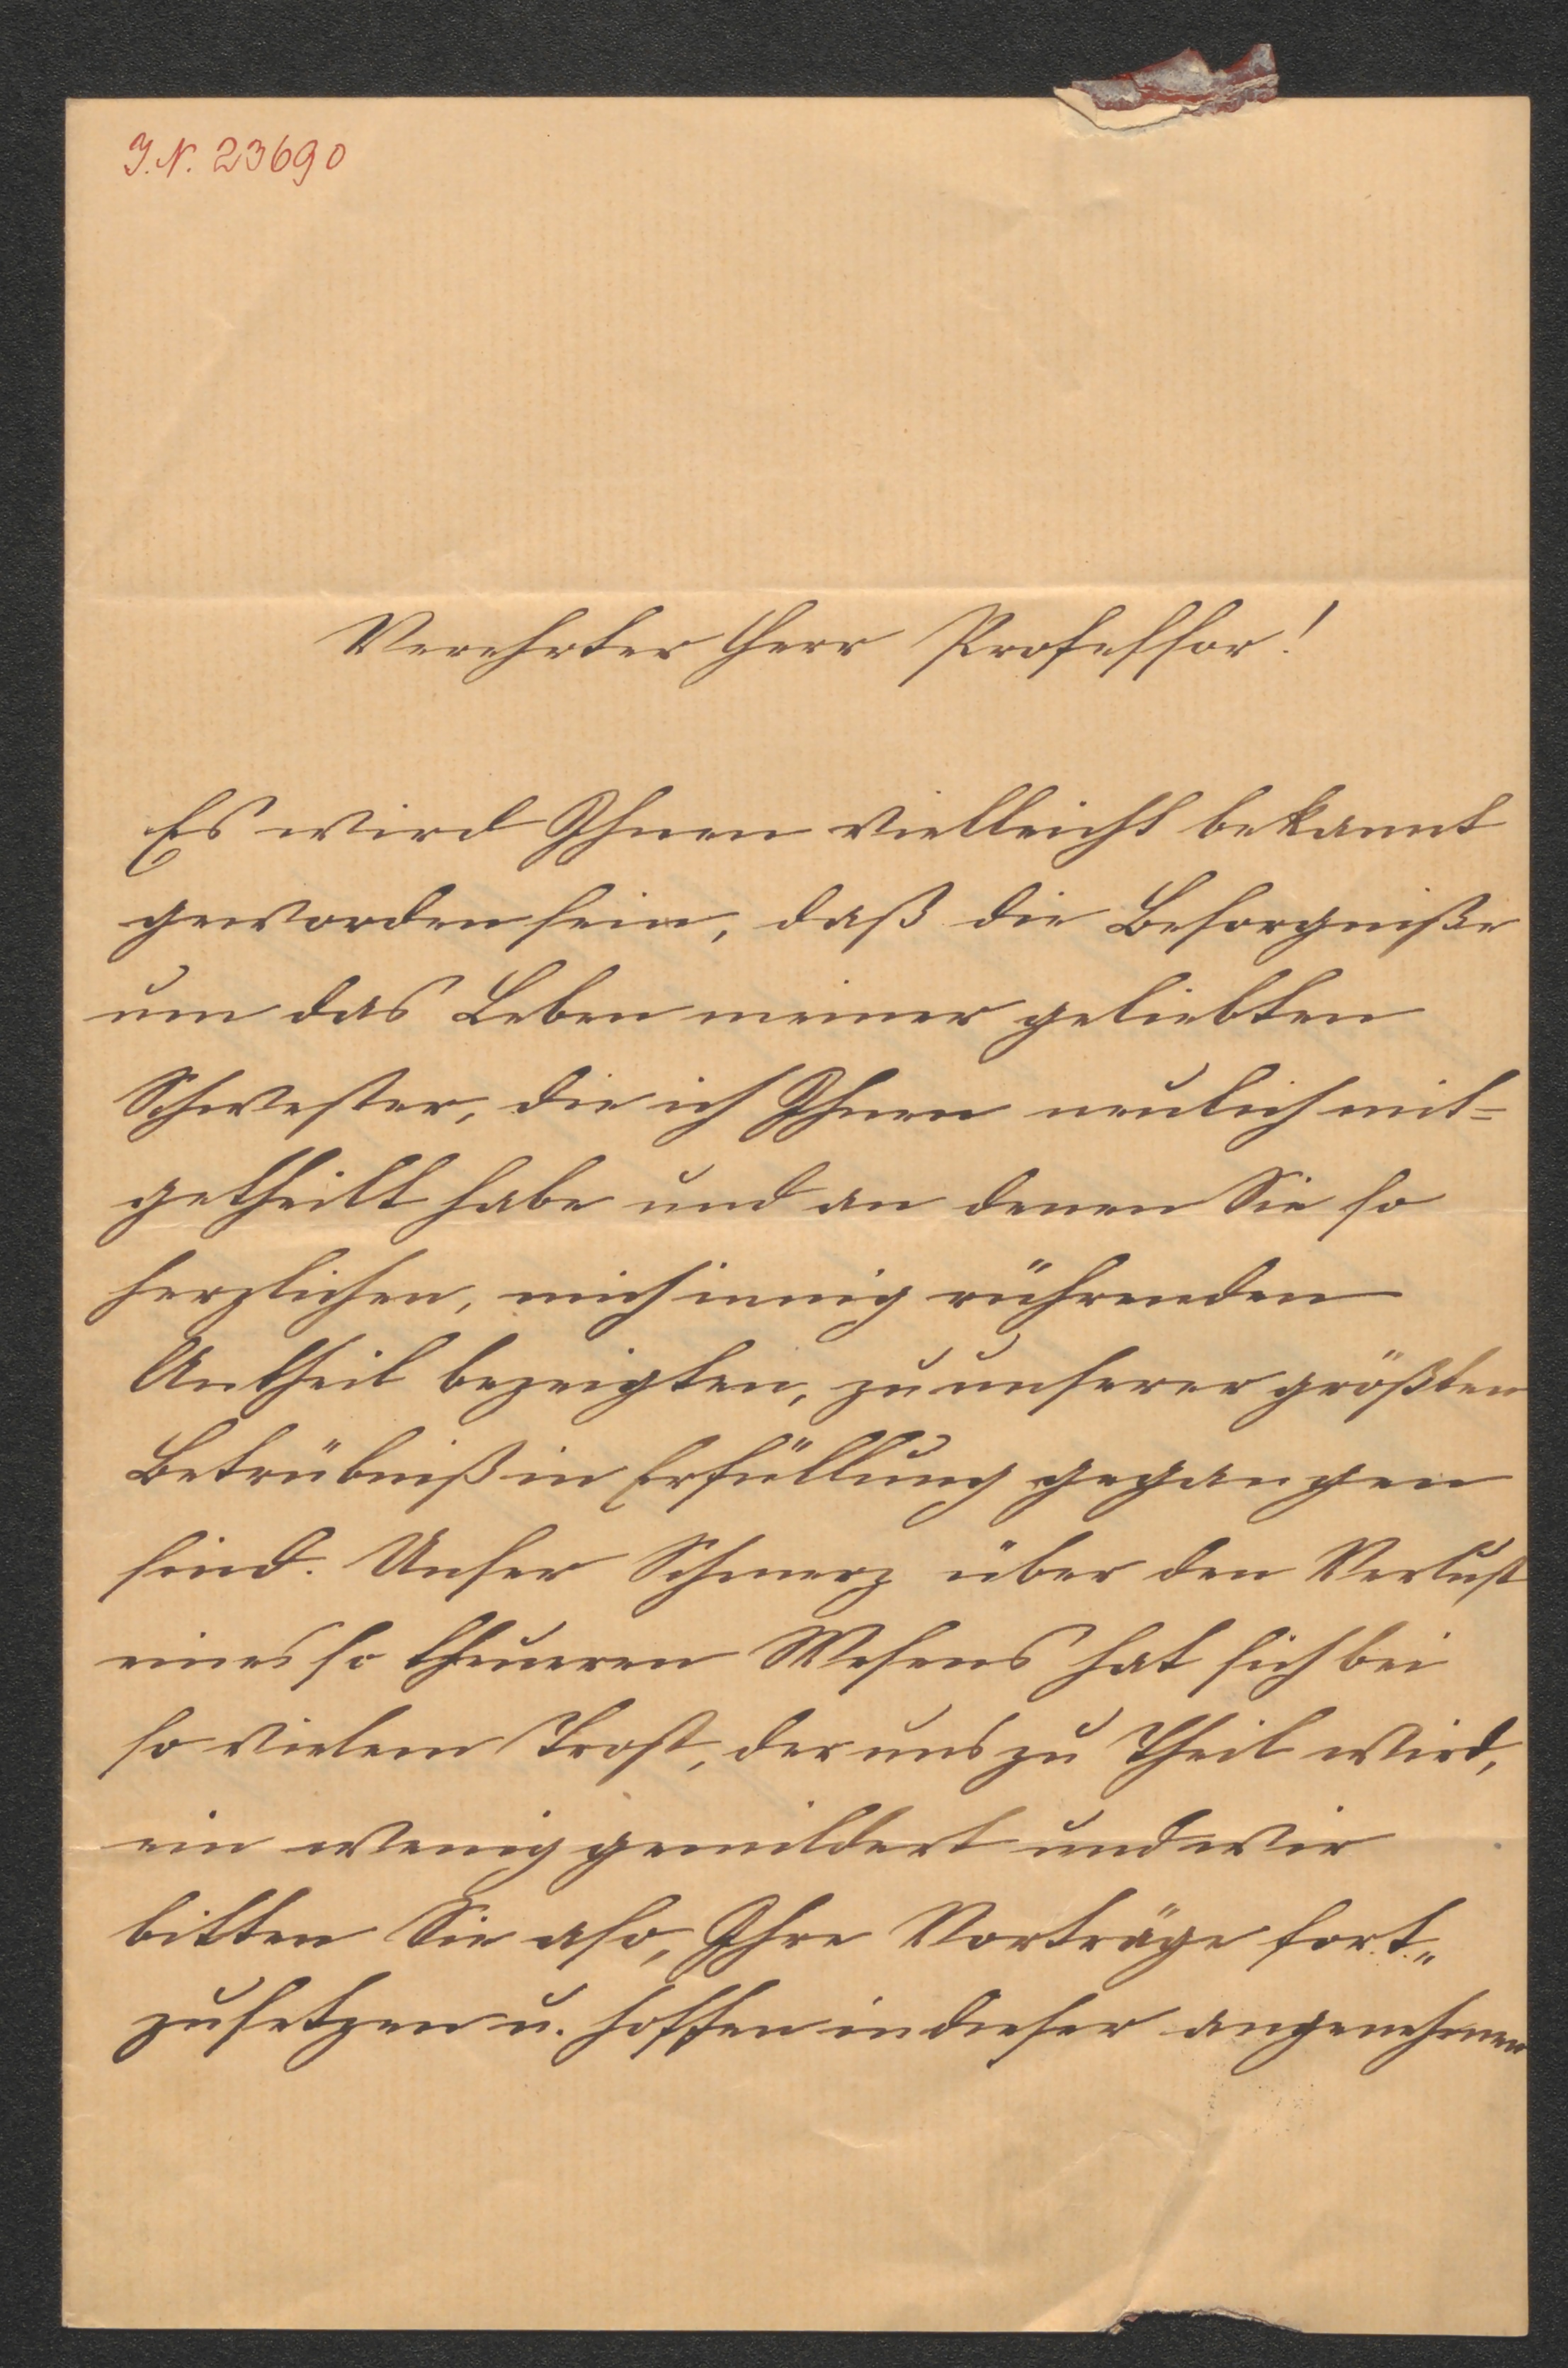 I.N. 23690
Verehrter Herr Professor!
Es wird Ihnen vielleicht bekannt
geworden sein, daß die Besorgniße
um das Leben meiner geliebten
Schwester, die ich Ihnen neulich mit=
getheilt habe und an denen Sie so
herzlichen, mich innig rührenden
Antheil bezeigten, zu unserer größten
Betrübniß in Erfüllung gegangen
sind. Unser Schmerz über den Verlust
eines so theueren Wesens hat sich bei
so vielem Trost, der uns zu Theil wird,
ein wenig gemildert und wir
bitten Sie also, Ihre Vorträge fort„
zusetzen u. hoffen in dieser angenehmen